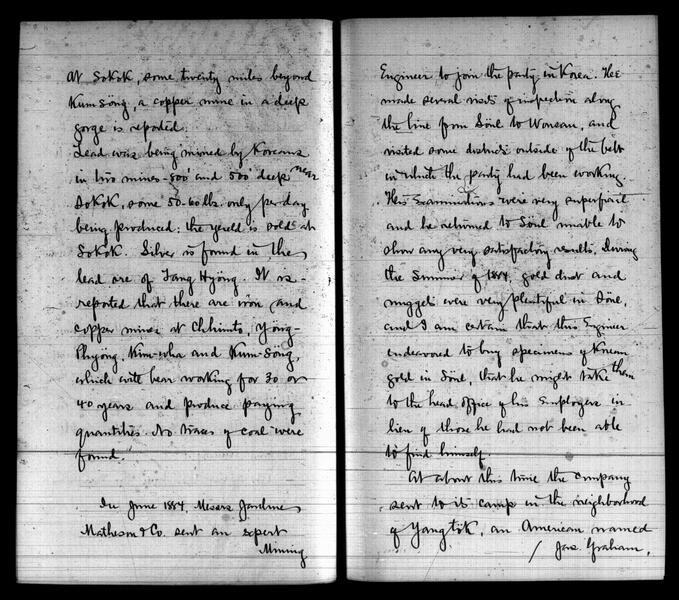 At Sokok, some twenty miles beyond
Kum Söng, a copper mine in a deep
gorge is repoted.
Lead was being mined by Koreans
in two mines - 800' and 500' deep near
Sokok, some 50-60 lbs. only per day
being produced; the yield is sold at
Sokok. Silver is found in the
lead ore of Tang Hyöng. It is
reported that there are iron and
copper mines at Chhimto, Yöng-
Phyöng, Kim-wha and Kum-Söng,
which will bear working for 30 or
40 years and produce paying
quantities. No traces of coal were
found.
In June 1884, Messrs Jardine
Matheson & Co. sent an expert
Mining
Engineer to join the party in Korea. He
made several visits of inspection along
the line from Söul to Wonsan, and
visited some districts outside of the belt
in which the party had been working.
His Examinations were very superficial
and he returned to Söul unable to
show any very satisfactory results. During
the Summer of 1884, gold dust and
nuggets were very plentiful in Söul,
and I am certain that this Engineer
endeavored to buy specimens of Korean
gold in Söul, that he might take them
to the head office of his Employers in
lieu of those he had not been able
to find himself.
At about this time the company
sent to its camp in the neighborhood
of Yangtök, an American named
Jas. Graham,